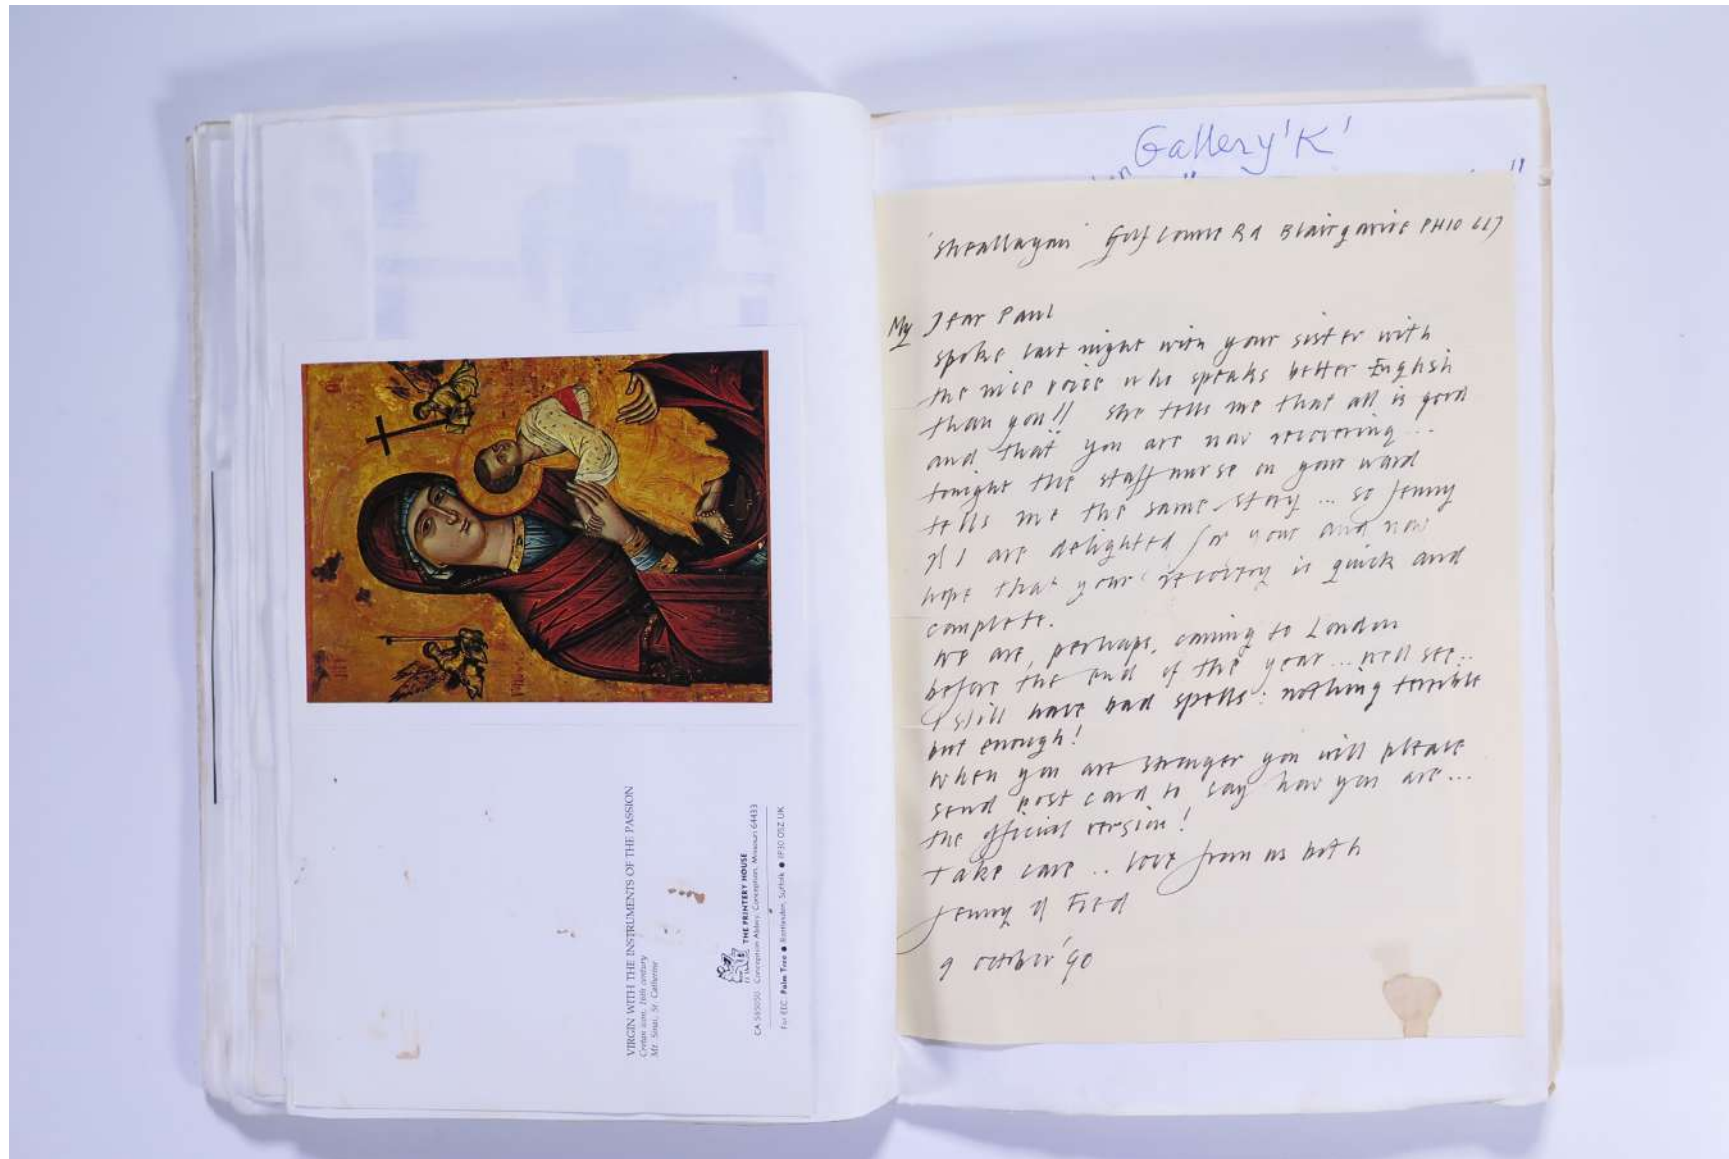 VIRGIN WITH THE INSTRUMENTS OF THE PASSION
Cretan icon, 16th century
Mt. Sinai, St. Catherine
THE PRINTERY HOUSE
CA 585050 Conception Abbey, Conception, Missouri 64433
For EEC: Palm Tree ● Rattlesden, Suffolk ● IP30 OSZ UK
Gallery 'K'
Golf Course Rd Blairgowrie PH10
My Dear Paul
spoke last night with your sister with
the nice voice who speaks better English
than you!! she tells me that all is good
and that you are now recovering...
tonight the staff nurse on your ward
tells me the same story... so Jenny
& I are delighted for your and now
hope that your recovery is quick and
complete.
we are, perhaps, coming to London
before the end of the year... we'll see..
I still have bad spells: nothing terrible
but enough!
when you are stronger you will please
send post card to say how you are...
the official version!
take care.. love from us both
Jenny & Fred
9 October '90